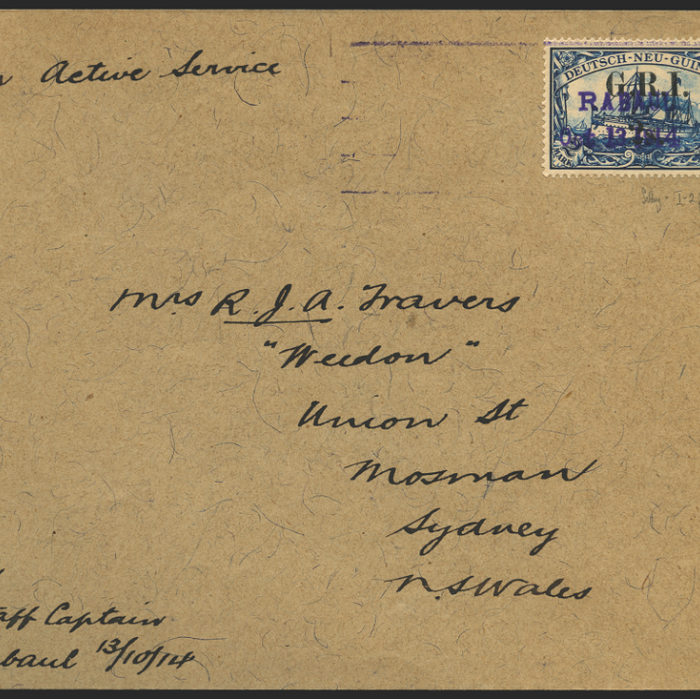 Active Service
DEUTSCH-NEU-GUIN
G.R.I.
RABAUL
Oct 13 1914
Mrs R.J.A. Travers
"Weedon"
Union St
Mosman
Sydney
N.S Wales
aff Captain
baul 13/10/14